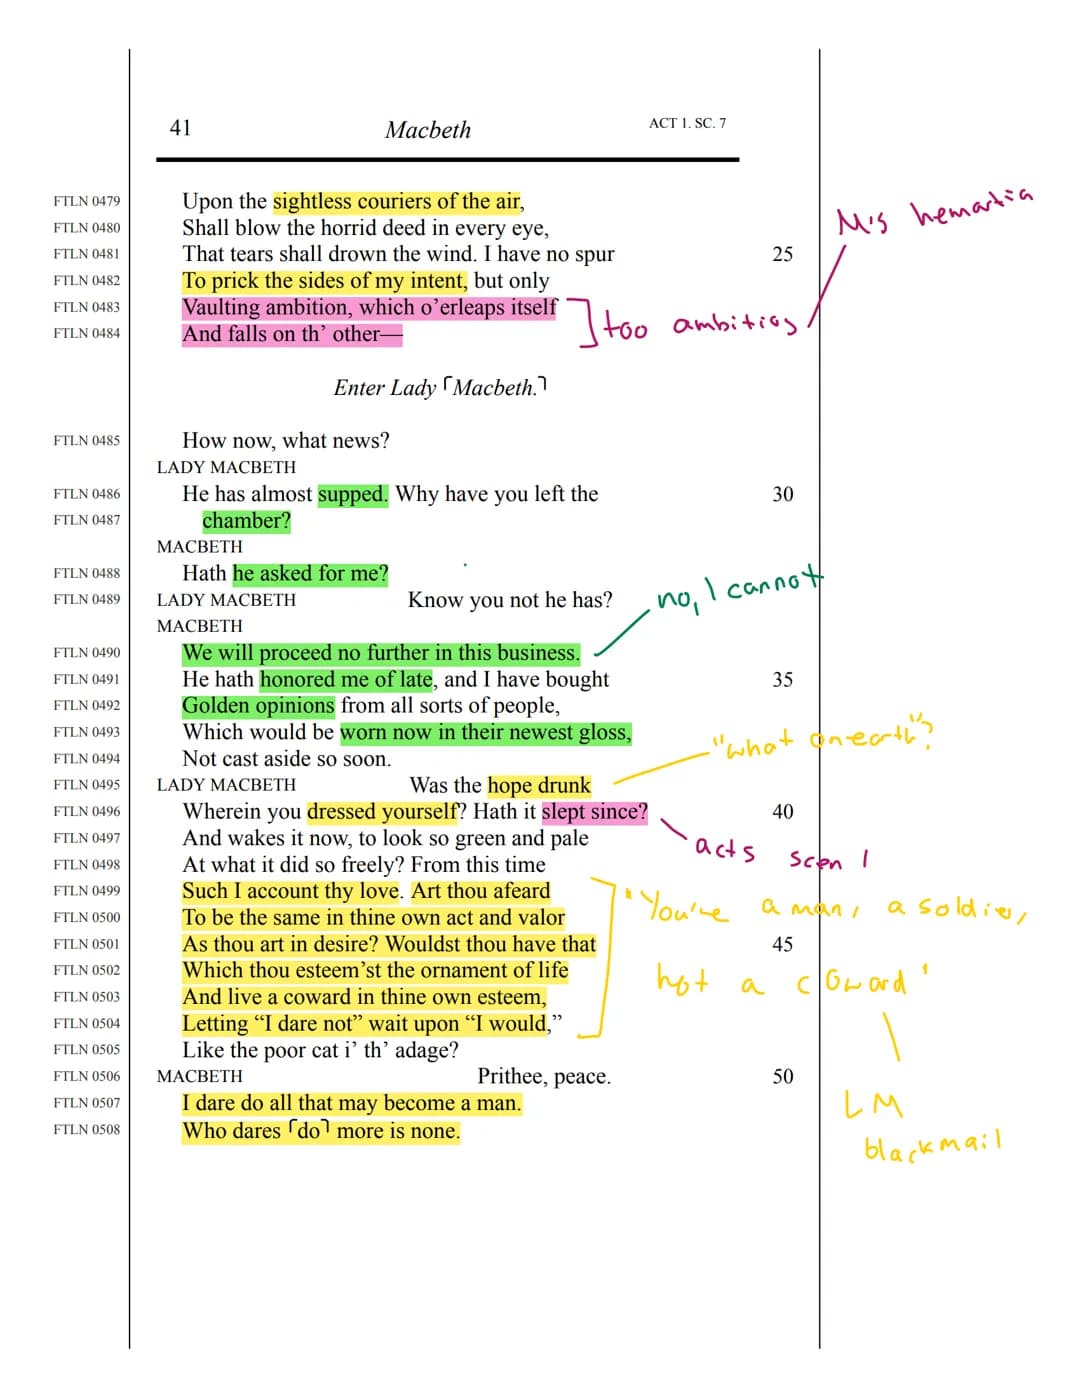 41 Macbeth ACT 1. SC. 7
FTLN 0479 Upon the sightless couriers of the air,
FTLN 0480 Shall blow the horrid deed in every eye,
M's hemartia
FTLN 0481 That tears shall drown the wind. I have no spur 25
FTLN 0482 To prick the sides of my intent, but only
FTLN 0483 Vaulting ambition, which o’erleaps itself
too ambitios
FTLN 0484 And falls on th’ other—
Enter Lady ⌜Macbeth.⌝
FTLN 0485 How now, what news?
LADY MACBETH
FTLN 0486 He has almost supped. Why have you left the 30
FTLN 0487 chamber?
MACBETH
FTLN 0488 Hath he asked for me?
FTLN 0489 LADY MACBETH Know you not he has?
no, I cannot
MACBETH
FTLN 0490 We will proceed no further in this business.
FTLN 0491 He hath honored me of late, and I have bought 35
FTLN 0492 Golden opinions from all sorts of people,
FTLN 0493 Which would be worn now in their newest gloss,
"what on earth"?
FTLN 0494 Not cast aside so soon.
FTLN 0495 LADY MACBETH Was the hope drunk
FTLN 0496 Wherein you dressed yourself? Hath it slept since? 40
FTLN 0497 And wakes it now, to look so green and pale
acts scen 1
FTLN 0498 At what it did so freely? From this time
FTLN 0499 Such I account thy love. Art thou afeard
FTLN 0500 To be the same in thine own act and valor
"You're a man, a soldier,
FTLN 0501 As thou art in desire? Wouldst thou have that 45
FTLN 0502 Which thou esteem’st the ornament of life
not a coward'
FTLN 0503 And live a coward in thine own esteem,
FTLN 0504 Letting “I dare not” wait upon “I would,”
FTLN 0505 Like the poor cat i’ th’ adage?
FTLN 0506 MACBETH Prithee, peace. 50
FTLN 0507 I dare do all that may become a man.
LM
FTLN 0508 Who dares ⌜do⌝ more is none.
blackmail